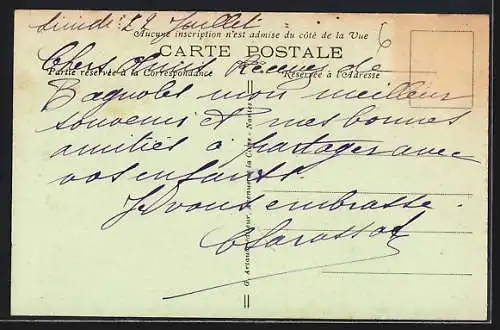 Lundi 22 Juillet
Aucune inscription n'est admise du côté de la Vue
CARTE POSTALE
Partie réservée à la Correspondance
Réservée à l'Adresse
Chers Amis Recevez de
Bagnoles mon meilleur
souvenir et mes bonnes
amitiés à partager avec
vos enfants.
Je vous embrasse